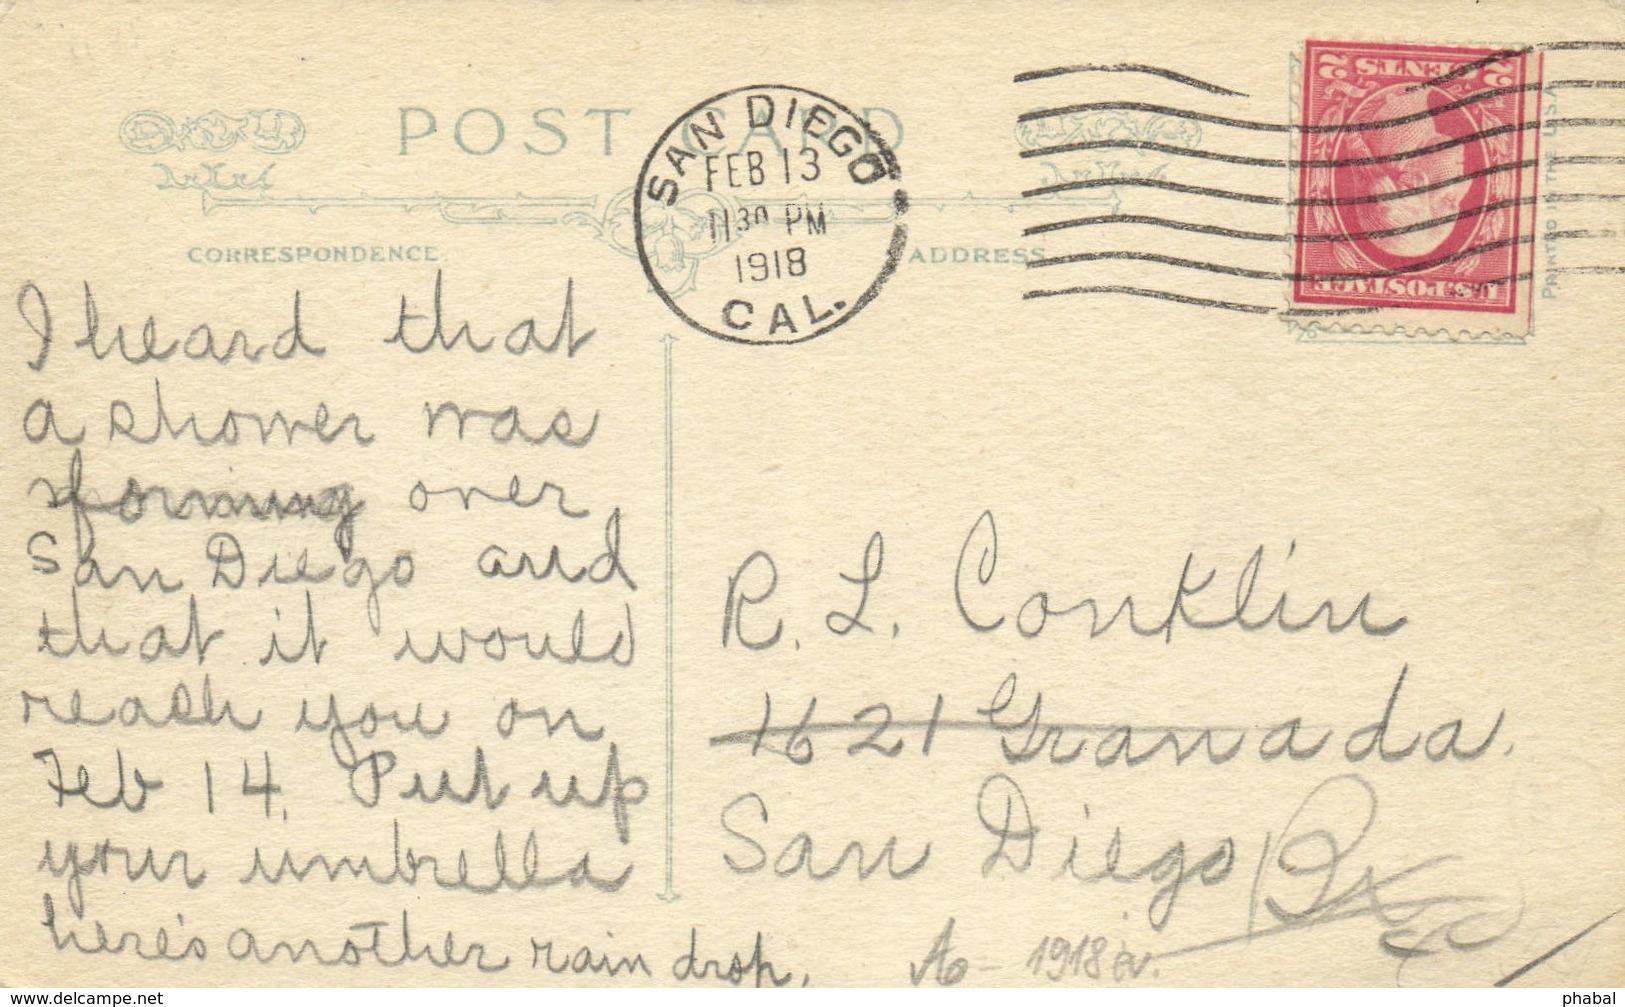 POST CARD
SAN DIEGO
FEB 13
11 30 PM
1918
CAL.
2 CENTS 2
U.S. POSTAGE
PRINTED IN THE U.S.A.
CORRESPONDENCE.
ADDRESS
I heard that
a shower was
forming over
San Diego and
that it would
reach you on
Feb 14. Put up
your umbrella
here's another rain drop.
R. L. Conklin
1621 Granada.
San Diego
1918
www.delcampe.net
phabal